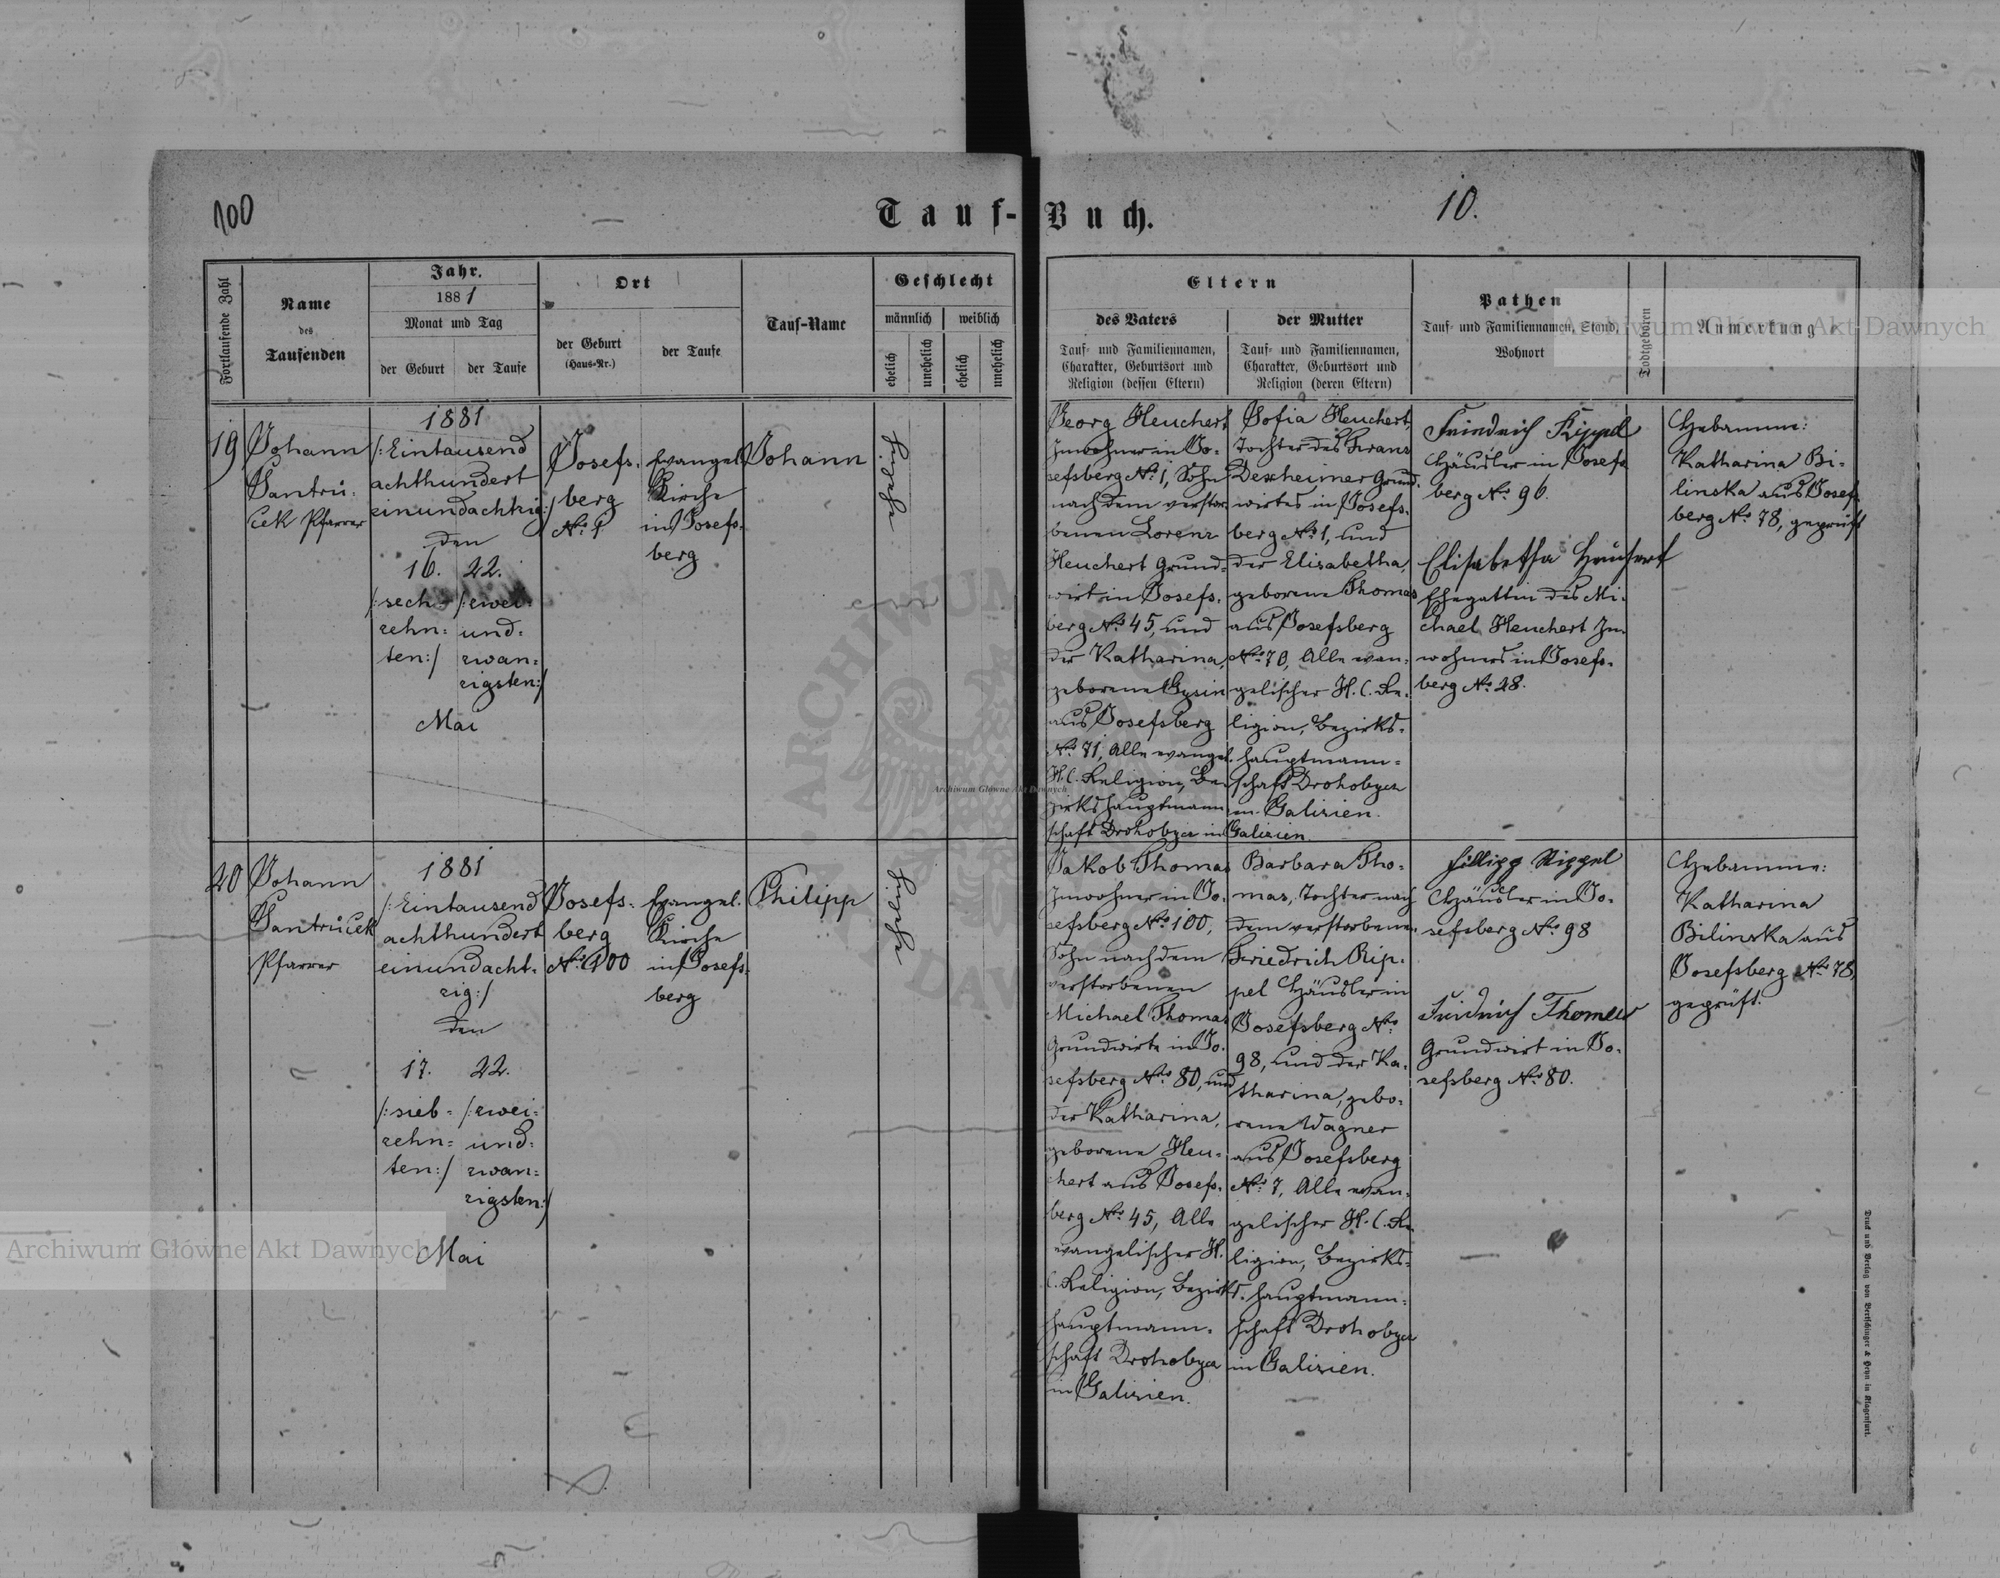 100
Tauf-Buch.
10.
Fortlaufende Zahl
Name
des
Taufenden
Jahr.
1881
Monat und Tag
der Geburt
der Taufe
Ort
der Geburt
(Haus-Nr.)
der Taufe
Tauf-Name
Geschlecht
männlich
weiblich
ehelich
unehelich
ehelich
unehelich
Eltern
des Vaters
Tauf- und Familiennamen,
Charakter, Geburtsort und
Religion (dessen Eltern)
der Mutter
Tauf- und Familiennamen,
Charakter, Geburtsort und
Religion (deren Eltern)
Pathen
Tauf- und Familiennamen, Stand,
Wohnort
Todtgeboren
Anmerkung
19
Johann
Santrů-
cek Pfarrer
1881
/:Eintausend
achthundert
einundachtzig:/
den
16. 22.
/:sech- /:zwei-
zehn- und-
ten:/ zwan-
zigsten:/
Mai
Josefs-
berg
No. 1
Evangel.
Kirche
in Josefs-
berg
Johann
ehelich
Georg Heuchert
Inwohner in Jo-
sefsberg No. 1, Sohn
nach dem verstor-
benen Lorenz
Heuchert Grund-
wirt in Josefs-
berg No. 45, und
der Katharina,
geborene Gysin
aus Josefsberg
No. 71, Alle evangel.
H.C. Religion, Be-
zirkshauptmann-
schaft Drohobycz in
Galizien
Sofia Heuchert,
Tochter des Franz
Dexheimer Grund-
wirtes in Josefs-
berg No. 1, und
der Elisabetha,
geborene Thomas
aus Josefsberg
No. 70, Alle evan-
gelischer H.C. Re-
ligion, Bezirks-
hauptmann-
schaft Drohobycz
in Galizien.
Friedrich Rippel
Häusler in Josefs
berg No. 96.
Elisabetha Heuchert
Ehegattin des Mi-
chael Heuchert In-
wohners in Josefs-
berg No. 28.
Hebamme:
Katharina Bi-
linska aus Josef-
berg No. 78, geprüft
20
Johann
Santrůcek
Pfarrer
1881
/:Eintausend
achthundert
einundacht-
zig:/
den
17. 22.
/:sieb- /:zwei-
zehn- und-
ten:/ zwan-
zigsten:/
Mai
Josefs-
berg
No. 100
Evangel.
Kirche
in Josefs-
berg
Philipp
ehelich
Jakob Thomas
Inwohner in Jo-
sefsberg No. 100,
Sohn nach dem
verstorbenen
Michael Thomas
Grundwirte in Jo-
sefsberg No. 80, und
der Katharina,
geborene Heu-
chert aus Josefs-
berg No. 45, Alle
evangelischer H.
C. Religion, Bezirks-
hauptmann-
schaft Drohobycz
in Galizien.
Barbara Tho-
mas, Tochter nach
dem verstorbenen
Friedrich Rip-
pel Häusler in
Josefsberg No.
98, und der Ka-
tharina, gebo-
rene Wagner
aus Josefsberg
No. 7, Alle evan-
gelischer H.C. Re-
ligion, Bezirks-
hauptmann-
schaft Drohobycz
in Galizien.
Fillipp Rippel
Häusler in Jo-
sefsberg No. 98
Fridrich Thomas
Grundwirt in Jo-
sefsberg No. 80.
Hebamme:
Katharina
Bilinska aus
Josefsberg No. 78,
geprüft.
Druck und Verlag von Bertschinger & Heyn in Klagenfurt.
Archiwum Główne Akt Dawnych
Archiwum Główne Akt Dawnych
Archiwum Główne Akt Dawnych